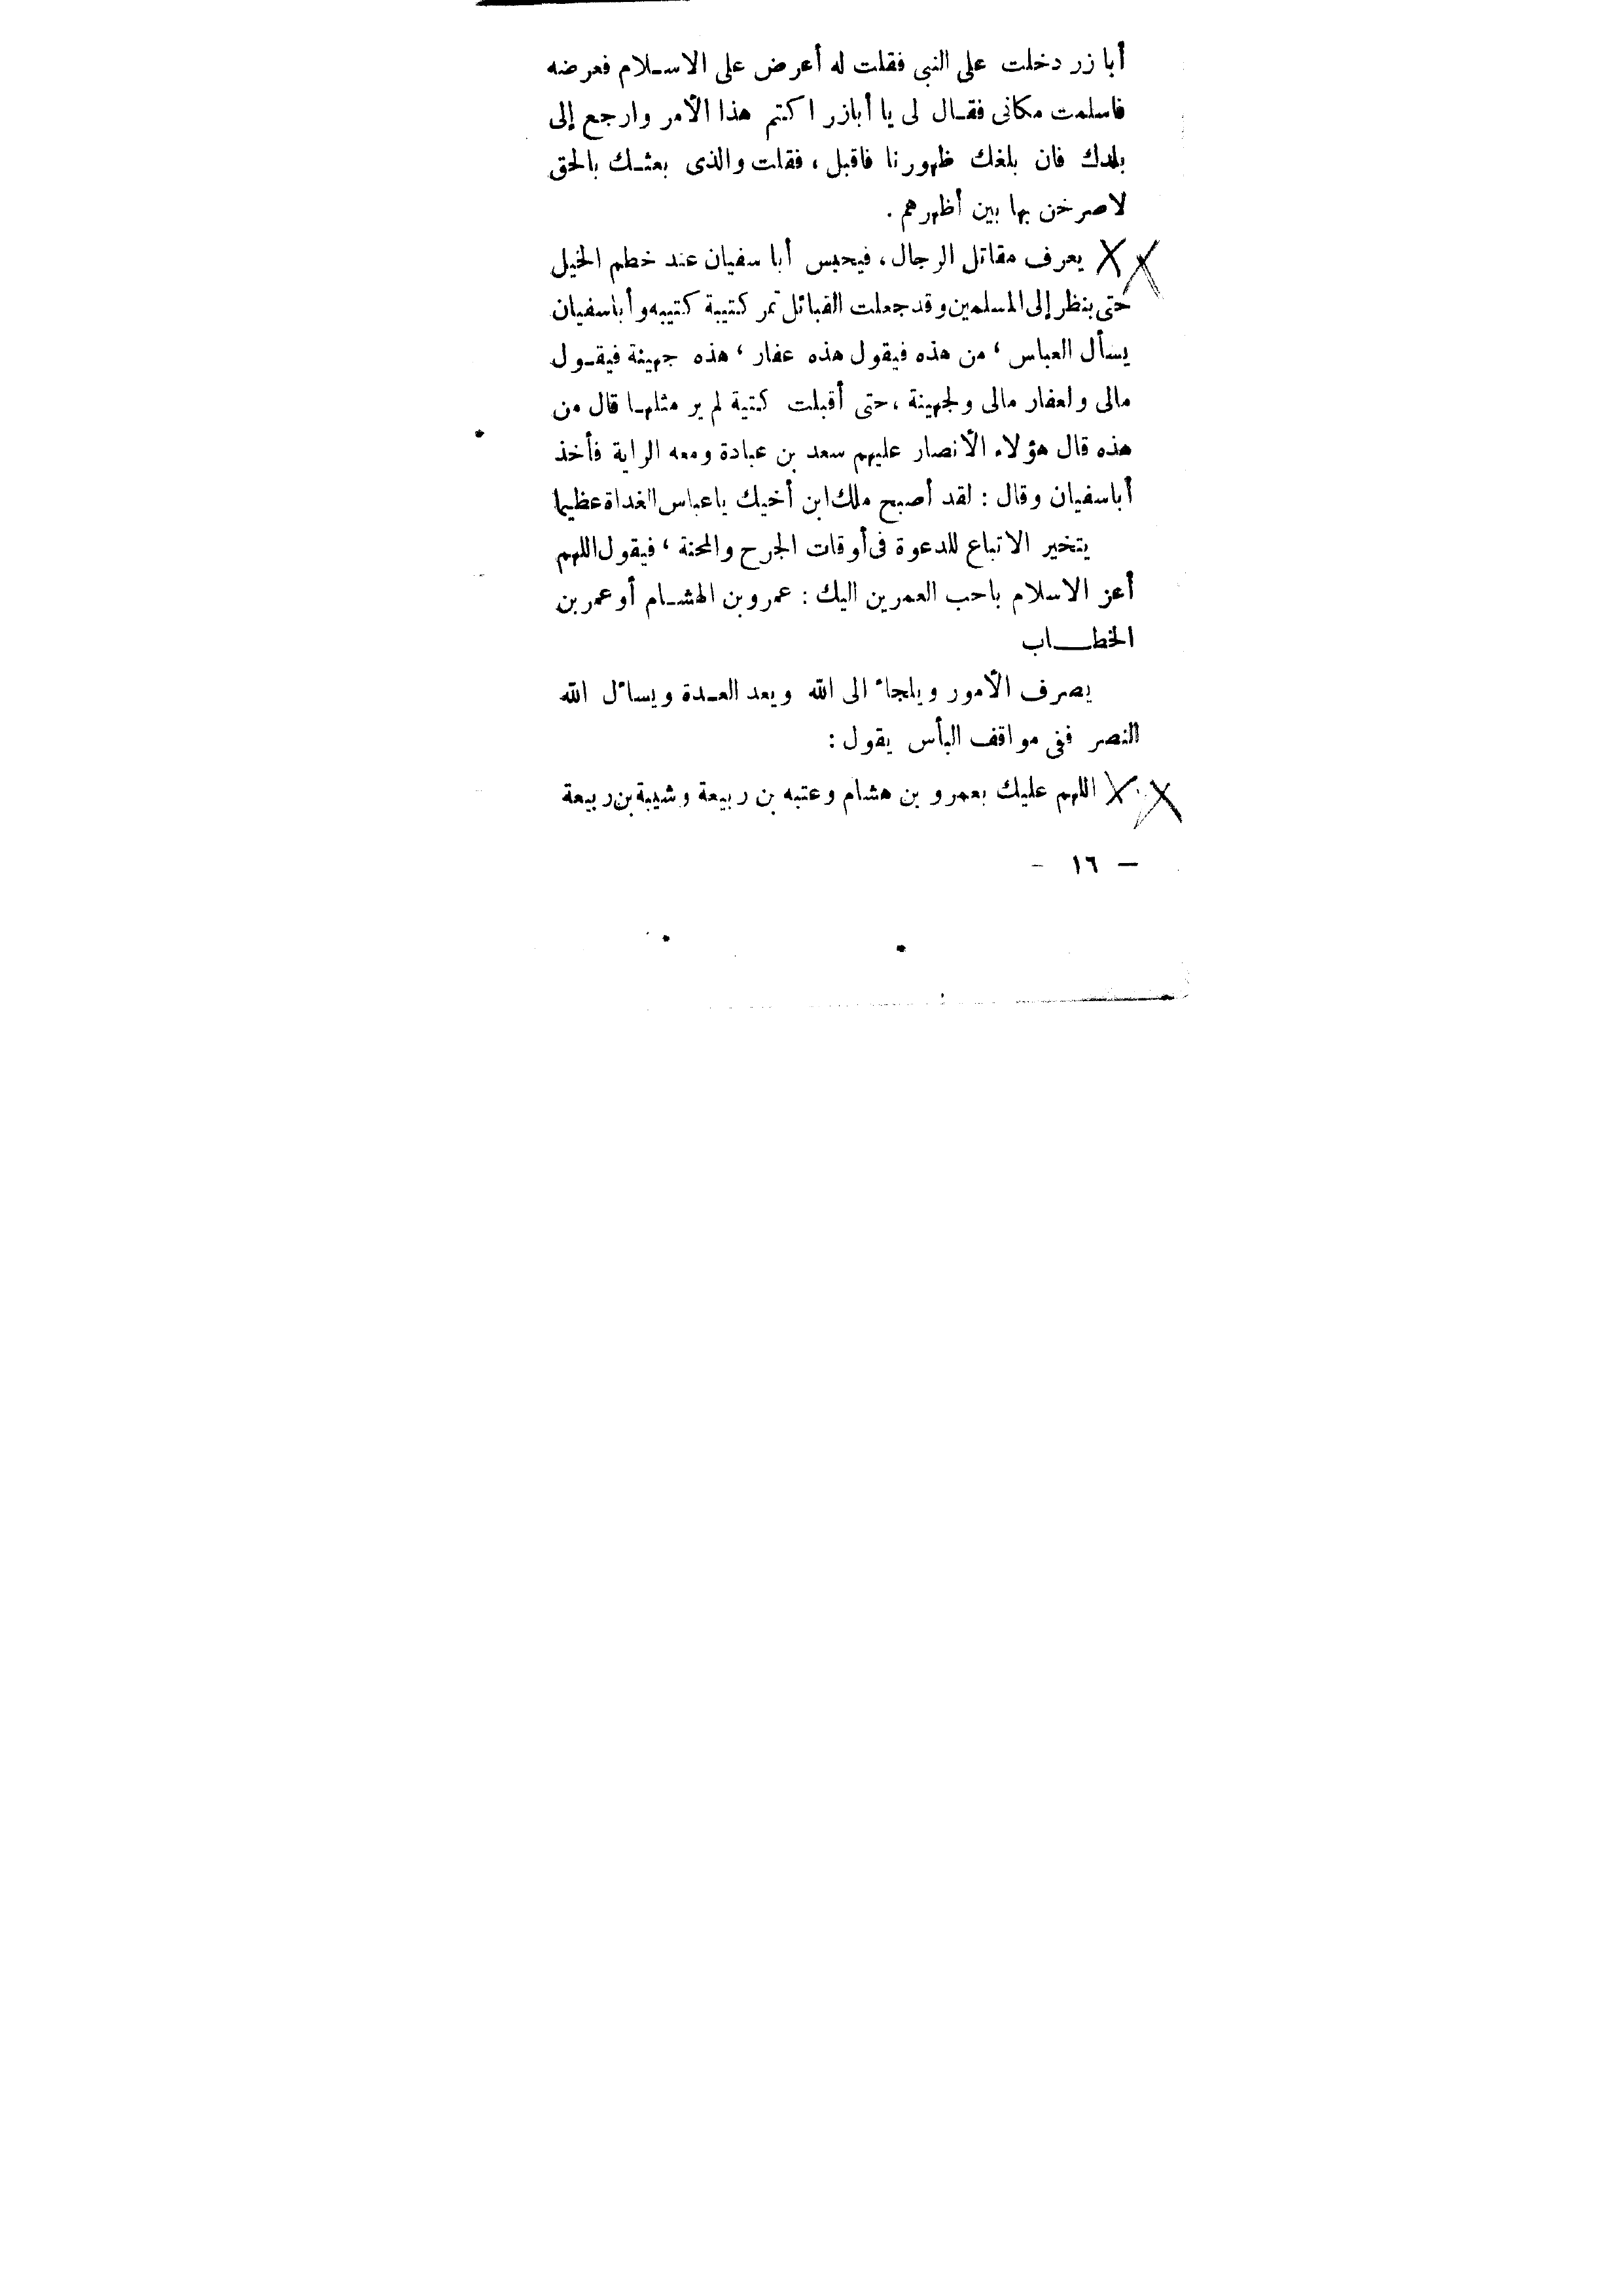 أبا زر دخلت على النبى فقلت له أعرض على الاسـلام فعرضه
فاسلمت مكانى فقـال لى يا أبازر اكتم هذا الأمر وارجع إلى
بلدك فان بلغك ظهورنا فاقبل ، فقلت والذى بعثـك بالحق
لاصرخن بها بين أظهرهم .
يعرف مقاتل الرجال ، فيحبس أبا سفيان عند خطم الخيل
حتى ينظر إلى المسلمين وقد جعلت القبائل تمر كتيبة كتيبه وأباسفيان
يسأل العباس ، من هذه فيقول هذه عفار ، هذه جهينة فيقـول
مالى ولعفار مالى ولجهينة ، حتى أقبلت كتية لم ير مثلهـا قال من
هذه قال هؤلاء الأنصار عليهم سعد بن عبادة ومعه الراية فأخذ
أباسفيان وقال : لقد أصبح ملك ابن أخيك ياعباس الغداة عظيما
يتخير الاتباع للدعوة فى أوقات الجرح والمحنة ، فيقول اللهم
أعز الاسلام باحب العمرين اليك : عمرو بن الهشـام أو عمر بن
الخطـــاب
يصرف الأمور ويلجاء الى الله ويعد العـدة ويسائل الله
النصر ففى مواقف البأس يقول :
اللهم عليك بعمرو بن هشام وعتبه بن ربيعة وشيبة بن ربيعة
— ١٦ -